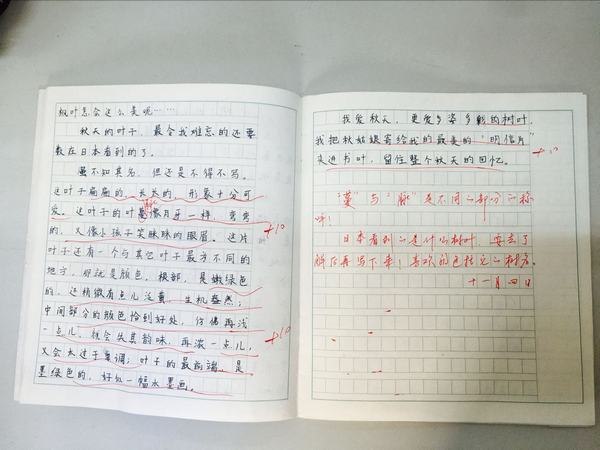 枫叶怎会这么美呢……
秋天的叶子，最令我难忘的还要
数在日本看到的了。
虽不知其名，但还是不得不写。
这叶子扁扁的、长长的，形象十分可
爱。这叶子的叶蔓像月牙一样，弯弯
脉
的，又像小孩子笑眯眯的眼眉。这片
+10
叶子还有一个与其它叶子最为不同的
地方，那就是颜色，根部，是嫩绿色
的，还稍微有点儿泛黄，生机盎然；
中间部分的颜色恰到好处，仿佛再浅
一点儿，就会失其韵味，再浓一点儿，
+10
又会太过于单调；叶子的最前端，是
墨绿色的，好似一幅水墨画。
我爱秋天，更爱多姿多彩的树叶，
我把秋姑娘寄给我的最美的“明信片”
夹进书叶，留住整个秋天的回忆。
“蔓”与“脉”是不同的部分的称
呼！
日本看到的是什么树叶，要去了
解后再写下来！喜欢的包括它的树名。
十一月四日